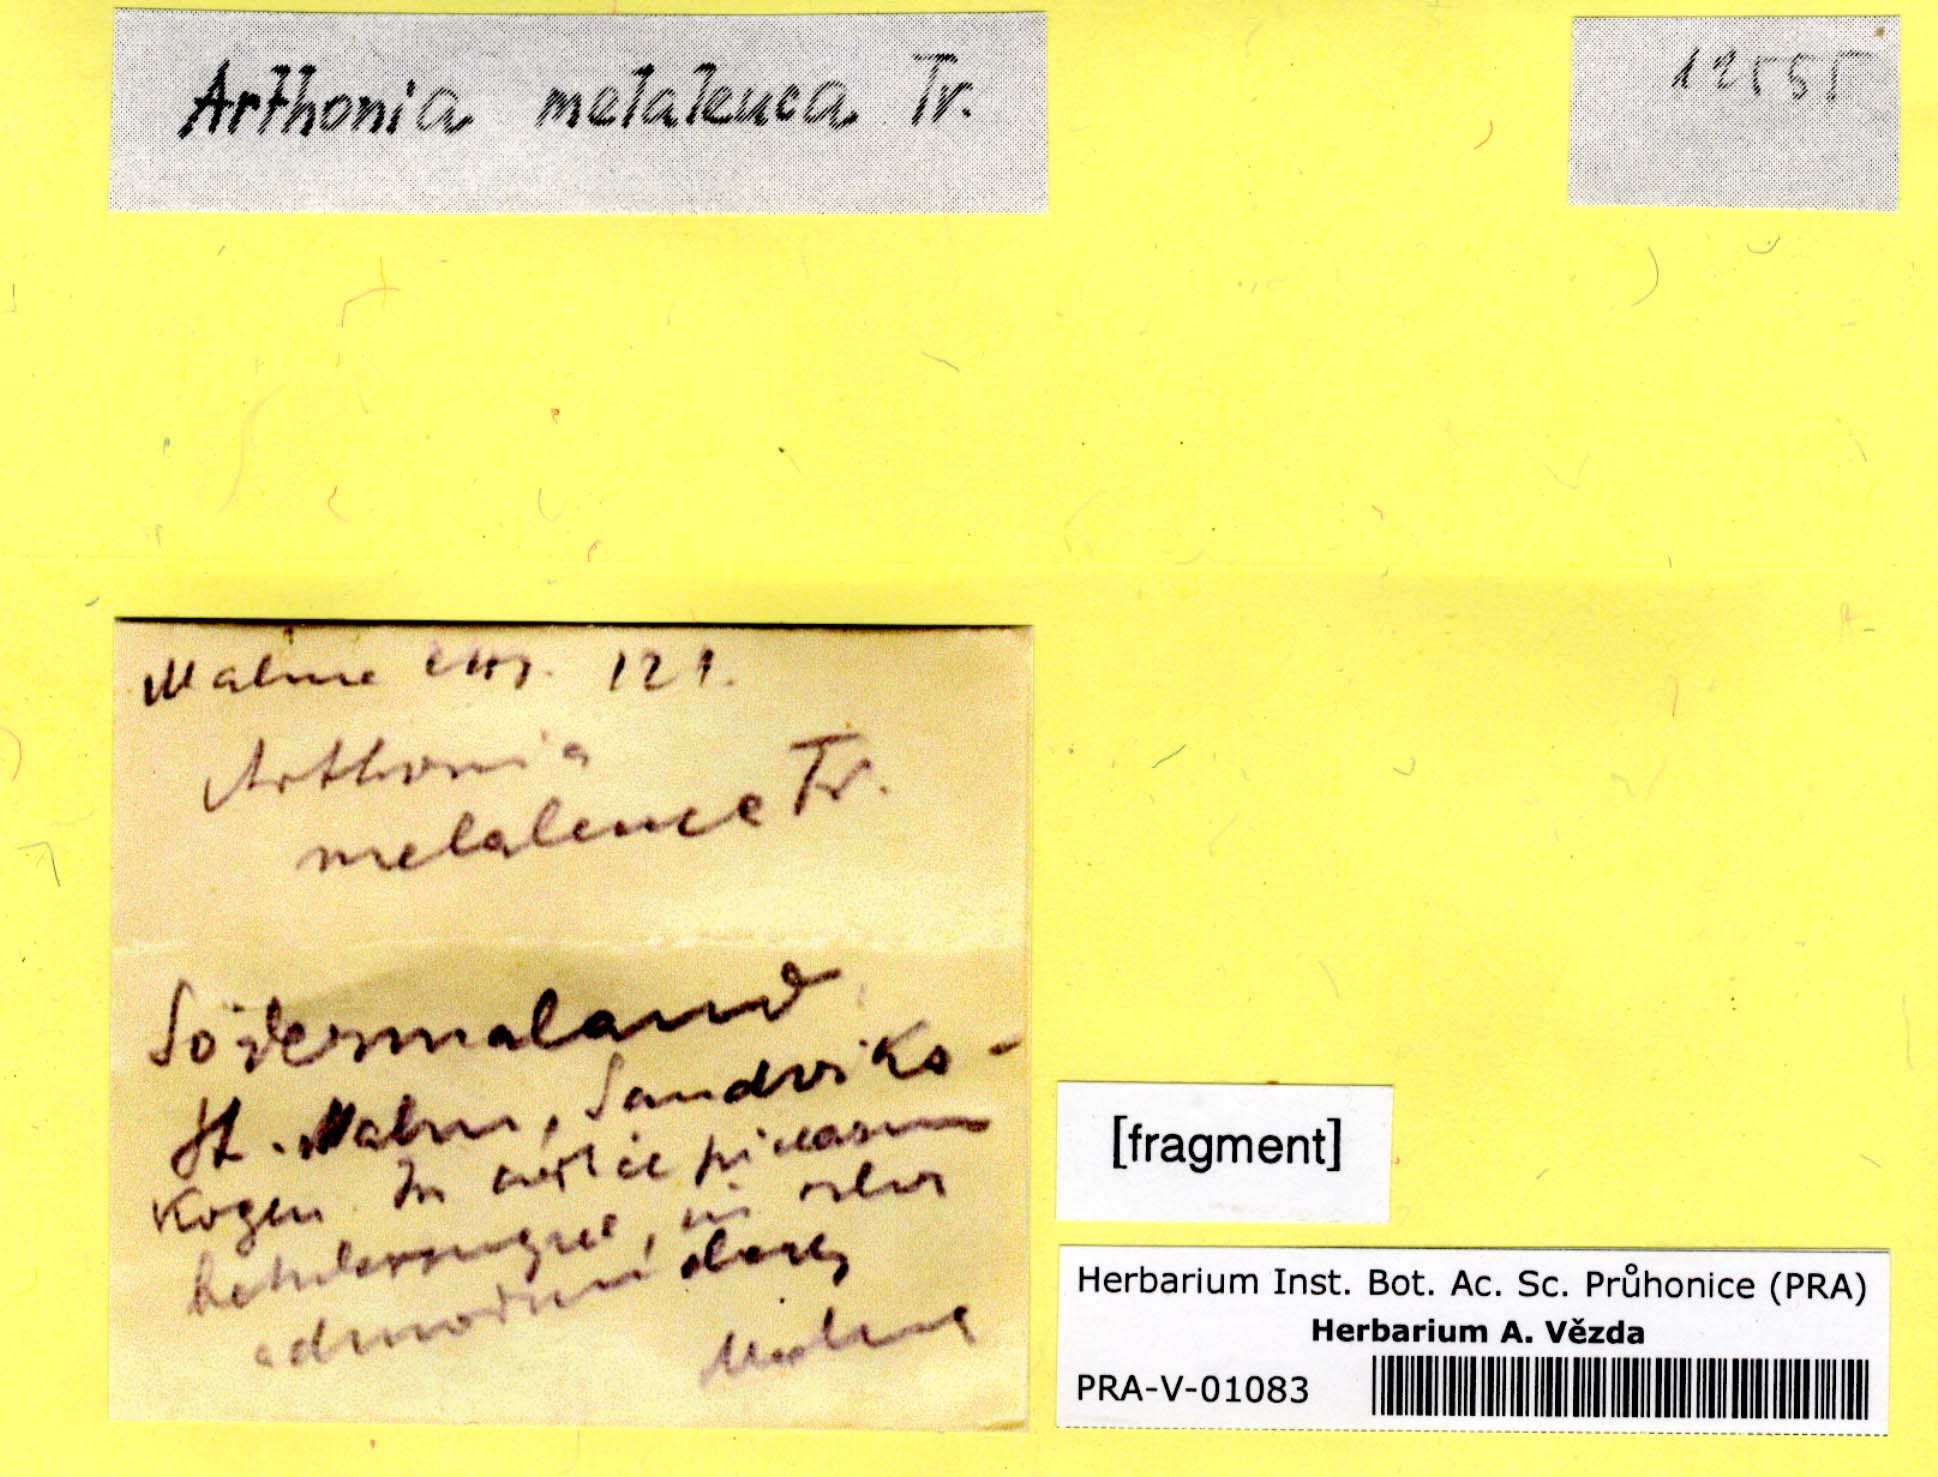 Arthonia melaleuca Tr.
12555
Malme exs. 121.
Arthonia
melaleuca Tr.
Södermaland
St. Malm, Sandviks-
kogen. In cortice picearum
in silva
admodum
Malme
[fragment]
Herbarium Inst. Bot. Ac. Sc. Průhonice (PRA)
Herbarium A. Vězda
PRA-V-01083